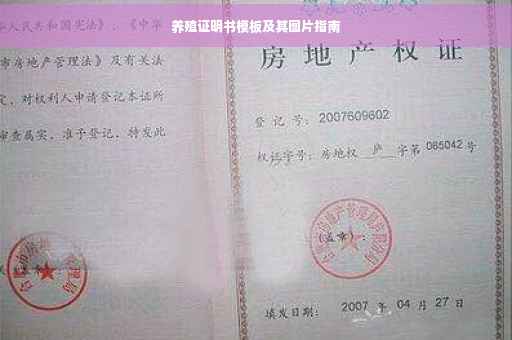 养殖证明书模板及其图片指南
华人民共和国宪法》、《中华
市房地产管理法》及有关法
定，对权利人申请登记本证所
审查属实，准予登记，特发此
房地产权证
登记号：2007609602
权证字号：房地权 庐 字第 085042 号
(盖章)：
填发日期： 2007 年 04 月 27 日